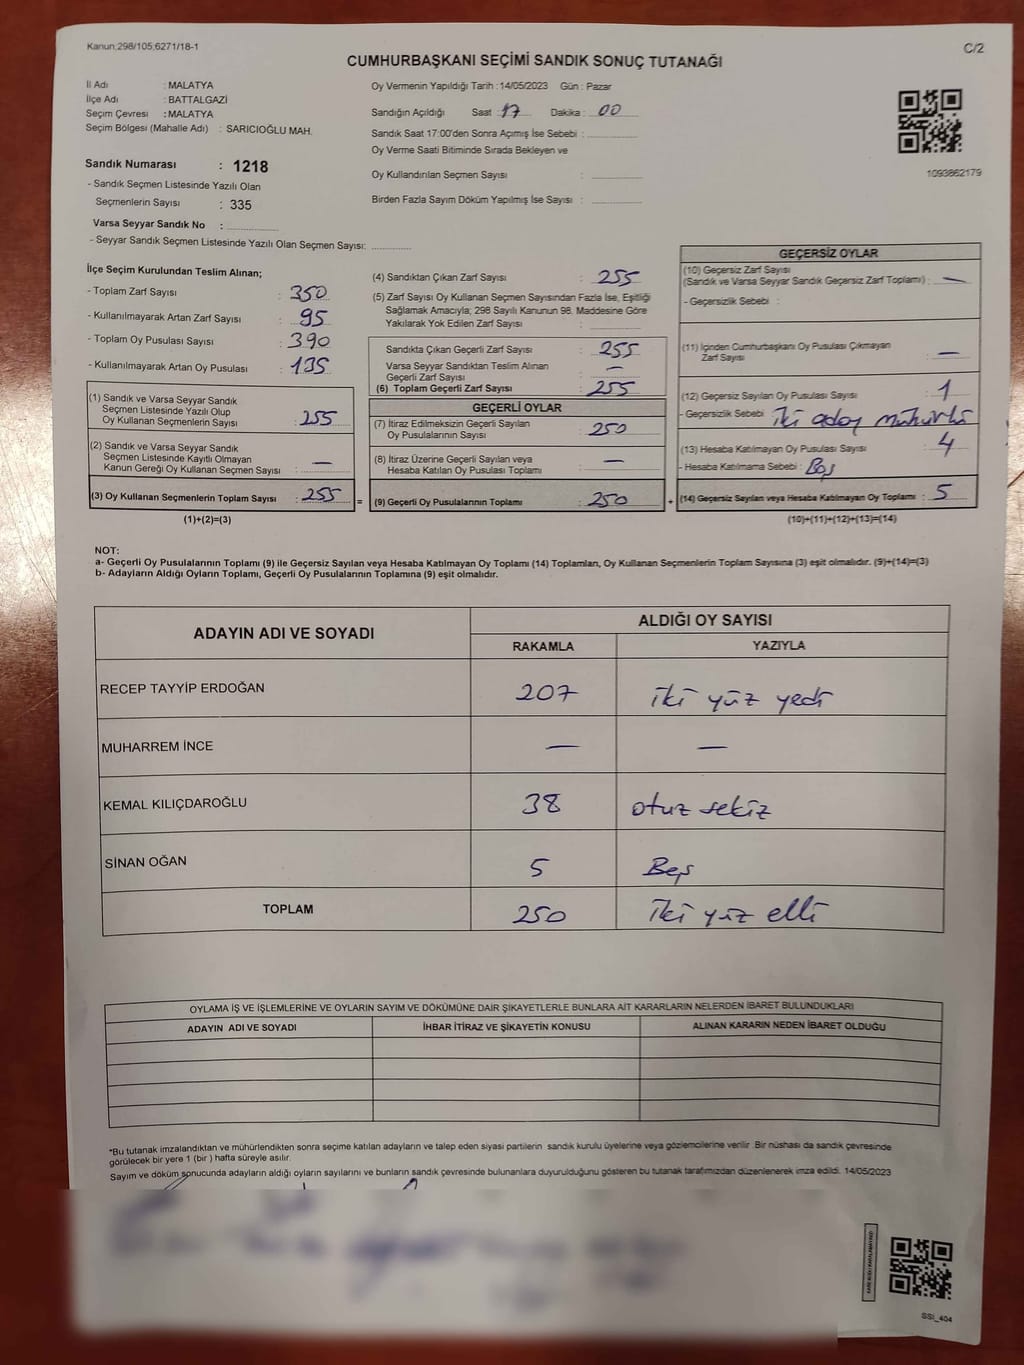 Kanun;298/105;6271/18-1
C/2
CUMHURBAŞKANI SEÇİMİ SANDIK SONUÇ TUTANAĞI
İl Adı : MALATYA
İlçe Adı : BATTALGAZİ
Seçim Çevresi : MALATYA
Seçim Bölgesi (Mahalle Adı) : SARICIOĞLU MAH.
Sandık Numarası : 1218
- Sandık Seçmen Listesinde Yazılı Olan
Seçmenlerin Sayısı : 335
Varsa Seyyar Sandık No :
- Seyyar Sandık Seçmen Listesinde Yazılı Olan Seçmen Sayısı:
Oy Vermenin Yapıldığı Tarih : 14/05/2023 Gün : Pazar
Sandığın Açıldığı Saat : 17 Dakika : 00
Sandık Saat 17:00'den Sonra Açılmış İse Sebebi :
Oy Verme Saati Bitiminde Sırada Bekleyen ve
Oy Kullandırılan Seçmen Sayısı :
Birden Fazla Sayım Döküm Yapılmış İse Sayısı :
1093862179
İlçe Seçim Kurulundan Teslim Alınan;
- Toplam Zarf Sayısı : 350
- Kullanılmayarak Artan Zarf Sayısı : 95
- Toplam Oy Pusulası Sayısı : 390
- Kullanılmayarak Artan Oy Pusulası : 135
(1) Sandık ve Varsa Seyyar Sandık
Seçmen Listesinde Yazılı Olup
Oy Kullanan Seçmenlerin Sayısı : 255
(2) Sandık ve Varsa Seyyar Sandık
Seçmen Listesinde Kayıtlı Olmayan
Kanun Gereği Oy Kullanan Seçmen Sayısı : —
(3) Oy Kullanan Seçmenlerin Toplam Sayısı : 255 =
(1)+(2)=(3)
(4) Sandıktan Çıkan Zarf Sayısı : 255
(5) Zarf Sayısı Oy Kullanan Seçmen Sayısından Fazla İse, Eşitliği
Sağlamak Amacıyla; 298 Sayılı Kanunun 98. Maddesine Göre
Yakılarak Yok Edilen Zarf Sayısı :
Sandıkta Çıkan Geçerli Zarf Sayısı : 255
Varsa Seyyar Sandıktan Teslim Alınan
Geçerli Zarf Sayısı : —
(6) Toplam Geçerli Zarf Sayısı : 255
GEÇERLİ OYLAR
(7) İtiraz Edilmeksizin Geçerli Sayılan
Oy Pusulalarının Sayısı : 250
(8) İtiraz Üzerine Geçerli Sayılan veya
Hesaba Katılan Oy Pusulası Toplamı : —
(9) Geçerli Oy Pusulalarının Toplamı : 250 +
GEÇERSİZ OYLAR
(10) Geçersiz Zarf Sayısı
(Sandık ve Varsa Seyyar Sandık Geçersiz Zarf Toplamı) : —
- Geçersizlik Sebebi :
(11) İçinden Cumhurbaşkanı Oy Pusulası Çıkmayan
Zarf Sayısı : —
(12) Geçersiz Sayılan Oy Pusulası Sayısı : 1
- Geçersizlik Sebebi : İki aday mühürlü
(13) Hesaba Katılmayan Oy Pusulası Sayısı : 4
- Hesaba Katılmama Sebebi : Boş
(14) Geçersiz Sayılan veya Hesaba Katılmayan Oy Toplamı : 5
(10)+(11)+(12)+(13)=(14)
NOT:
a- Geçerli Oy Pusulalarının Toplamı (9) ile Geçersiz Sayılan veya Hesaba Katılmayan Oy Toplamı (14) Toplamları, Oy Kullanan Seçmenlerin Toplam Sayısına (3) eşit olmalıdır. (9)+(14)=(3)
b- Adayların Aldığı Oyların Toplamı, Geçerli Oy Pusulalarının Toplamına (9) eşit olmalıdır.
ADAYIN ADI VE SOYADI
ALDIĞI OY SAYISI
RAKAMLA YAZIYLA
RECEP TAYYİP ERDOĞAN 207 iki yüz yedi
MUHARREM İNCE — —
KEMAL KILIÇDAROĞLU 38 otuz sekiz
SİNAN OĞAN 5 Beş
TOPLAM 250 iki yüz elli
OYLAMA İŞ VE İŞLEMLERİNE VE OYLARIN SAYIM VE DÖKÜMÜNE DAİR ŞİKAYETLERLE BUNLARA AİT KARARLARIN NELERDEN İBARET BULUNDUKLARI
ADAYIN ADI VE SOYADI İHBAR İTİRAZ VE ŞİKAYETİN KONUSU ALINAN KARARIN NEDEN İBARET OLDUĞU
*Bu tutanak imzalandıktan ve mühürlendikten sonra seçime katılan adayların ve talep eden siyasi partilerin sandık kurulu üyelerine veya gözlemcilerine verilir. Bir nüshası da sandık çevresinde
görülecek bir yere 1 (bir ) hafta süreyle asılır.
Sayım ve döküm sonucunda adayların aldığı oyların sayılarını ve bunların sandık çevresinde bulunanlara duyurulduğunu gösteren bu tutanak tarafımızdan düzenlenerek imza edildi. 14/05/2023
SSI_404